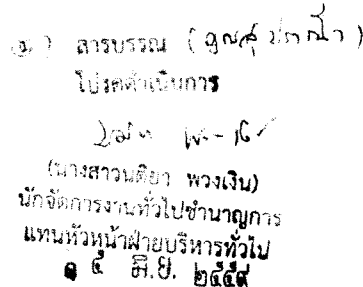 ๓) สารบรรณ (คุณสุปราณี)
โปรดดำเนินการ
(นางสาวนติยา พวงเงิน)
นักจัดการงานทั่วไปชำนาญการ
แทนหัวหน้าฝ่ายบริหารทั่วไป
๑๕ มิ.ย. ๒๕๕๙